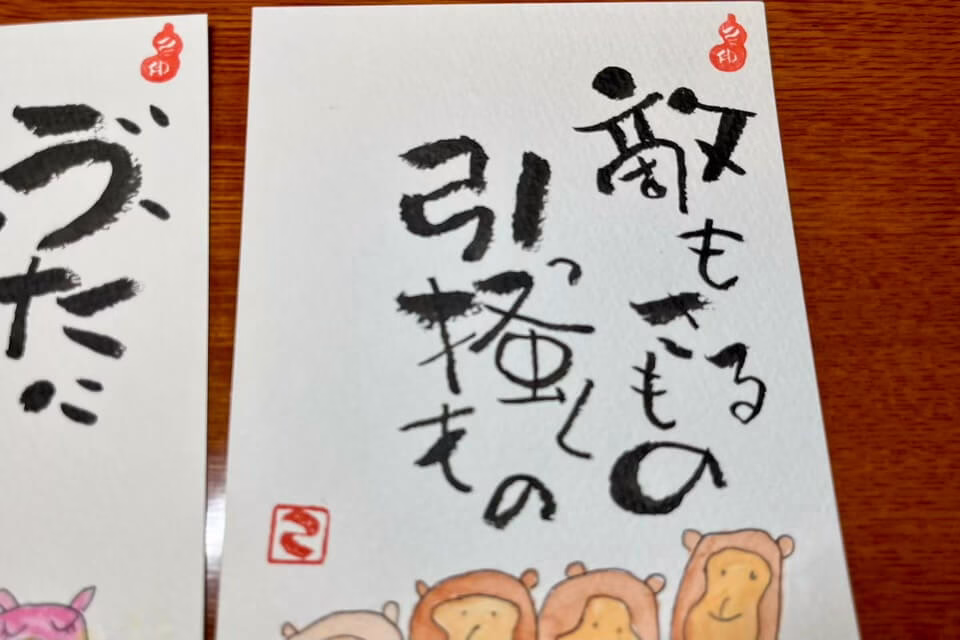 敵もさるもの
引っ掻くもの
こ
ぶたに